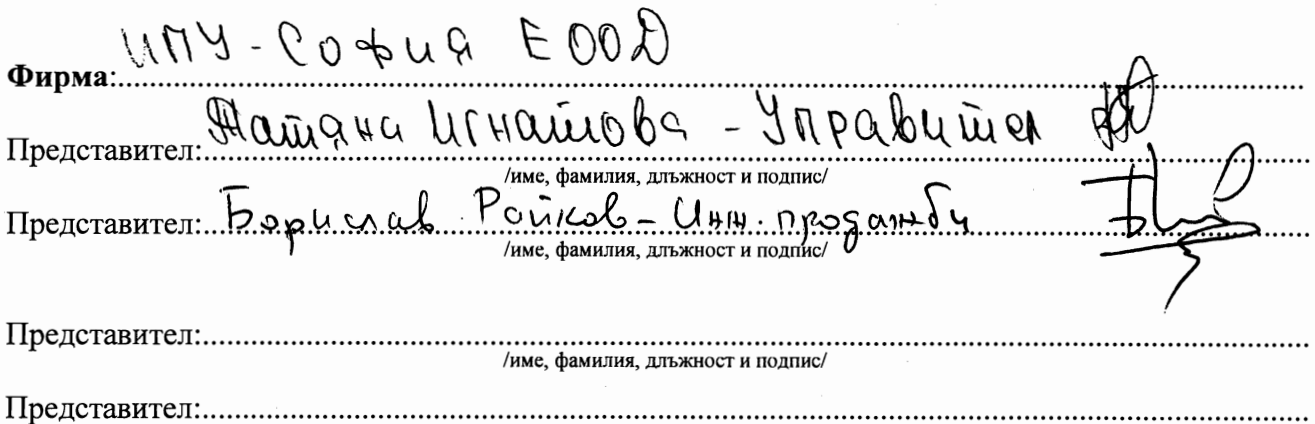 Фирма: ИПУ-София ЕООД
Представител: Татяна Игнатова - Управител
/име, фамилия, длъжност и подпис/
Представител: Борислав Райков - Инж. продажби
/име, фамилия, длъжност и подпис/
Представител:
/име, фамилия, длъжност и подпис/
Представител: